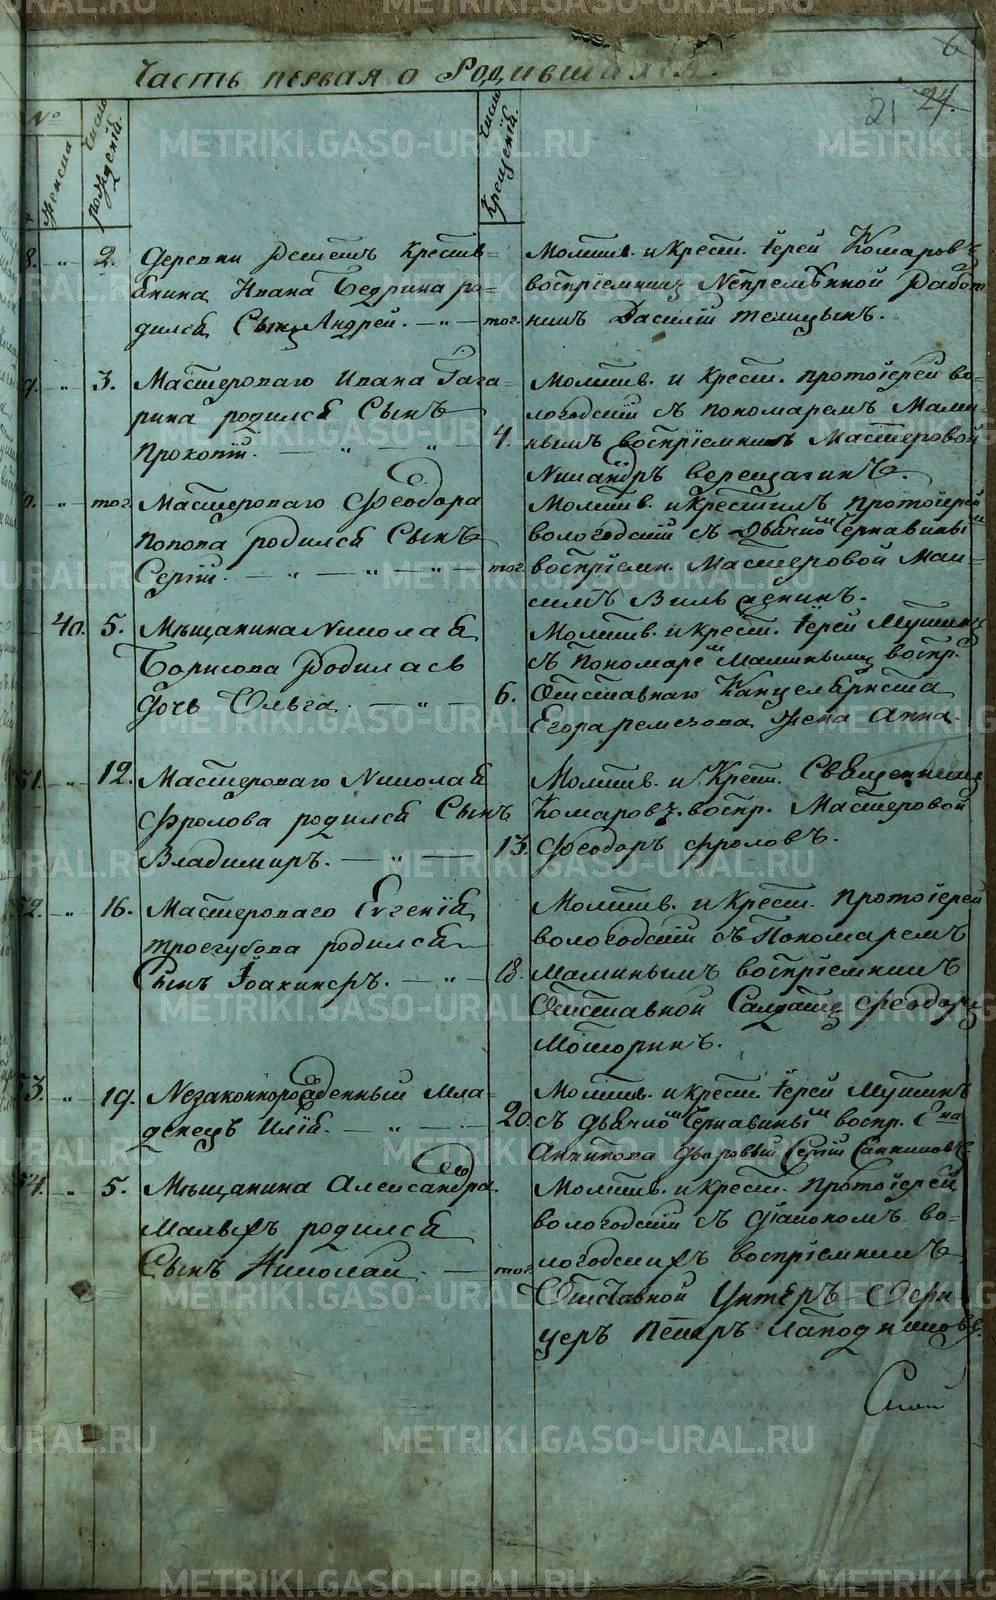 METRIKI.GASO-URAL.RU
Часть первая о Родившихся.
6
21 24.
№
женска
Число рождений.
Число крещений.
8. „ 2. Деревни Решетъ Крестья=
янина Ивана Бедрина ро=
дился Сынъ Андрей. — „ — тог.
Молитв. и Крест. Іерей Комаровъ
воспріемникъ Непремѣнной Работ
никъ Василій Телицынъ.
9. „ 3. Мастероваго Ивана Гага=
рина родился Сынъ
Прокопій. — „ — „ — 4.
Молитв. и Крест. протоіерей во=
логодскій съ пономаремъ Мами=
нымъ воспріемникъ Мастеровой
Никандръ Верещагинъ.
0. „ тог. Мастероваго Феодора
Попова родился Сынъ
Сергій. — „ — „ — „ — тог.
Молитв. и Крестилъ протоіерей
вологодскій съ дьячкомъ Чернавинымъ
воспріемн. Мастеровой Мак=
симъ
40. 5. Мѣщанина Николая
Борисова Родилась
Дочь Ольга. — „ — 6.
Молитв. и Крест. Іерей Мутинъ
съ Пономаремъ Маминымъ воспр.
Отставнаго Канцеляриста
Егора Ремезова жена Анна.
51. „ 12. Мастероваго Николая
Фролова родился Сынъ
Владимиръ. — „ — 13.
Молитв. и Крест. Священникъ
Комаровъ. воспр. Мастеровой
Феодоръ Фроловъ.
52. „ 16. Мастероваго Евгенія
Троегубова родился
Сынъ Іоакинфъ. — „ — 18.
Молитв. и Крест. Протоіерей
вологодскій съ Пономаремъ
Маминымъ воспріемникъ
Отставной Салдатъ Феодоръ
Моторинъ.
53. „ 19. Незаконнорожденный Мла=
денецъ Илія. — „ — 20.
Молитв. и Крест. Іерей Мутинъ
съ дьячкомъ Чернавинымъ воспр. Гна
Аникиова дворовый Сергій
54. „ 5. Мѣщанина Александра
Малыхъ родился
Сынъ Николай. — тог.
Молитв. и Крест. Протоіерей
вологодскій съ Діакономъ во=
логодскихъ воспріемникъ
Отставной Унтеръ-Офи=
церъ Петръ Лаподниковъ.